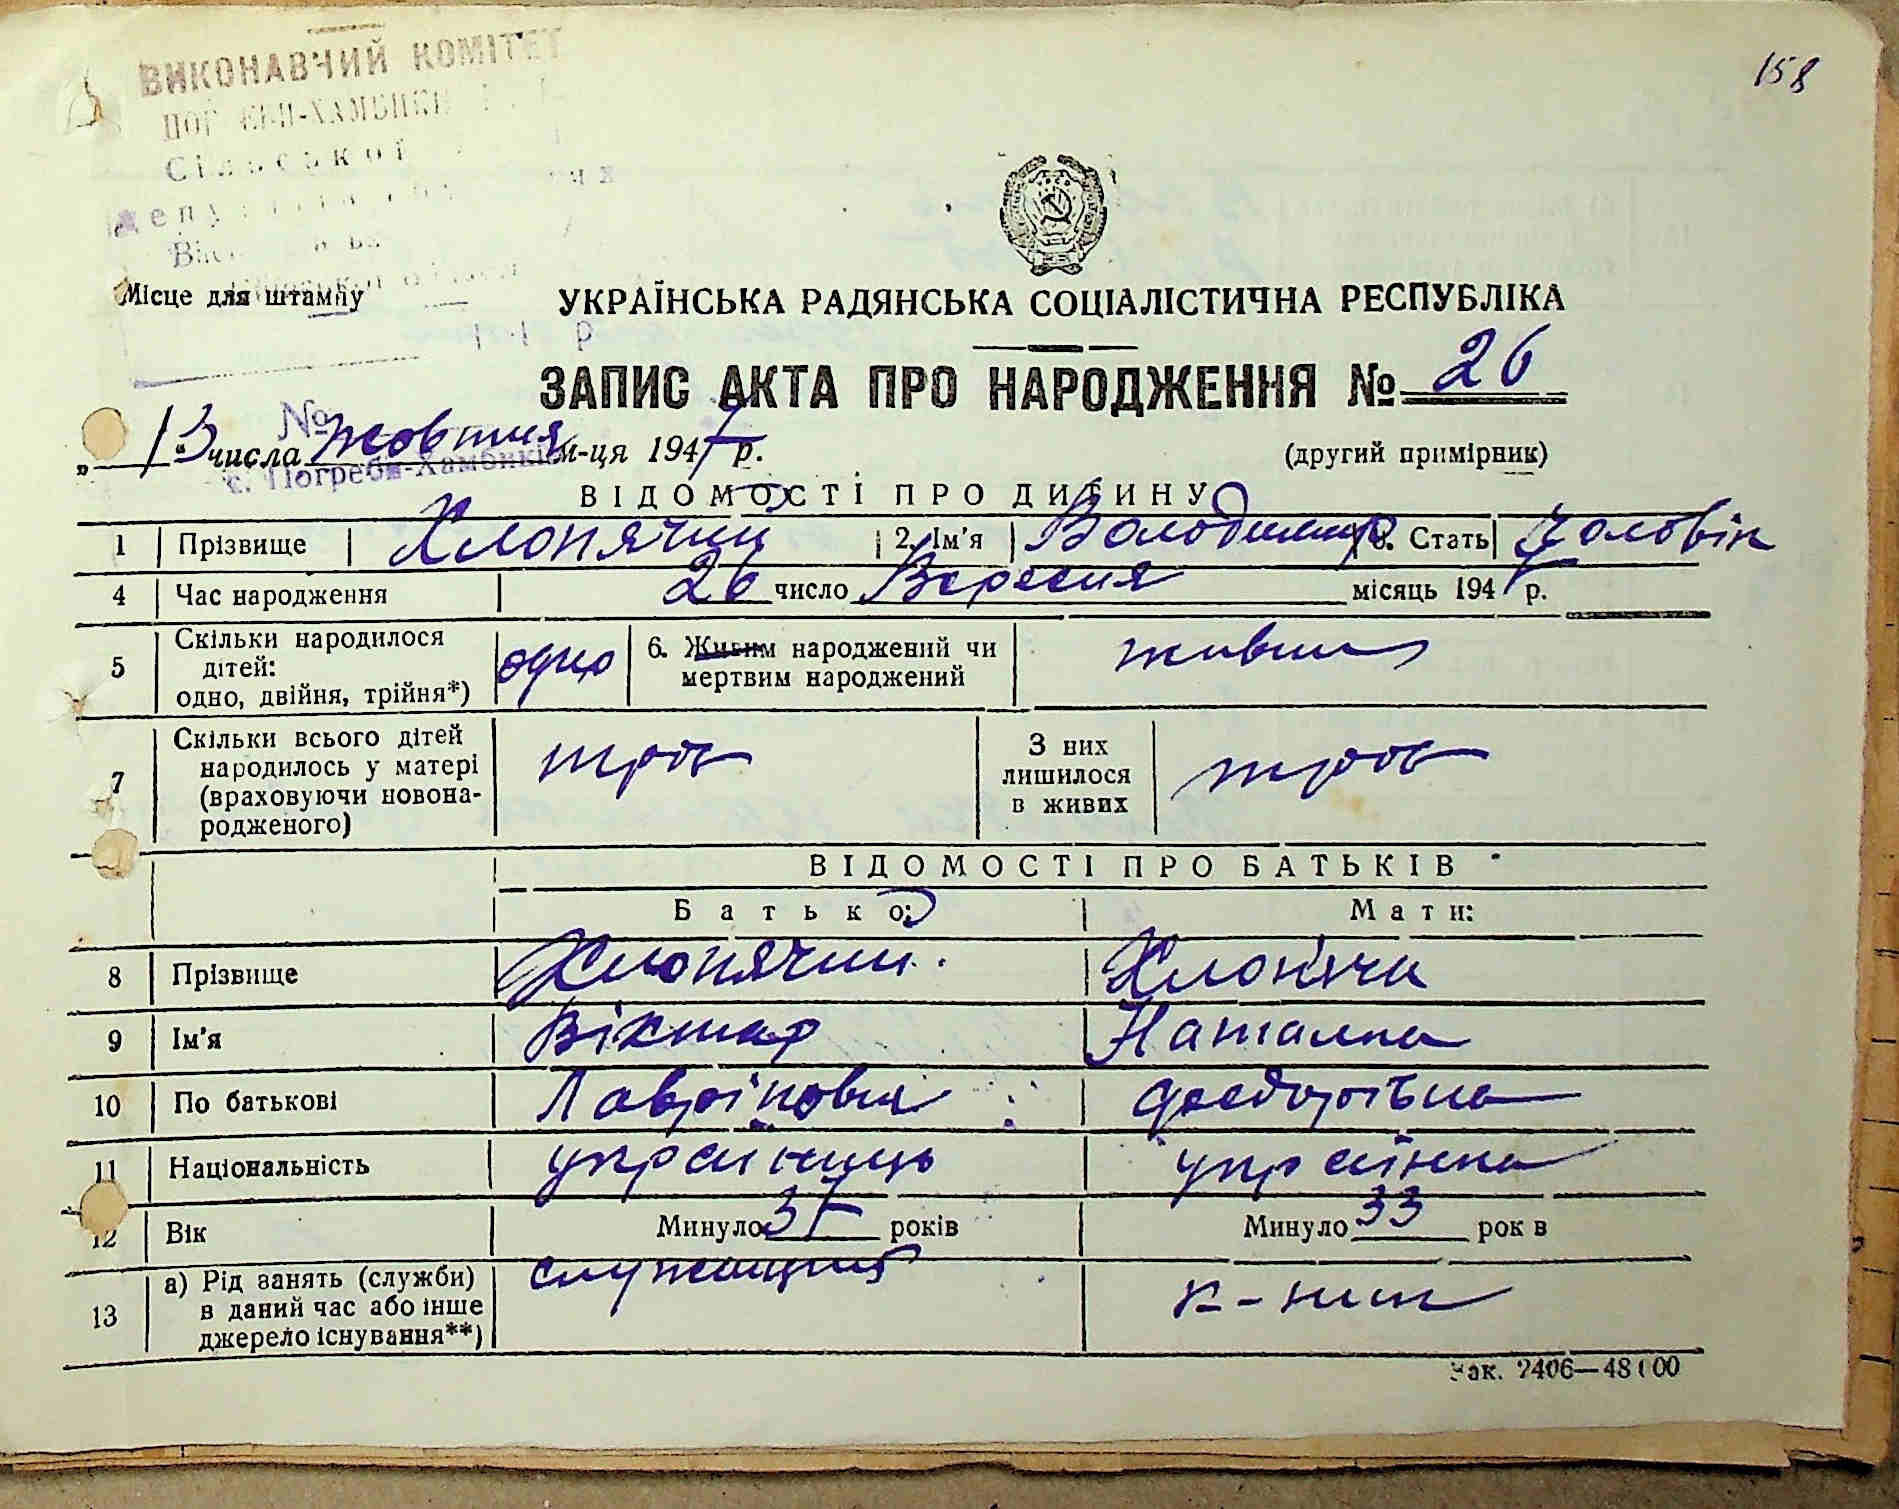 158
ВИКОНАВЧИЙ КОМІТЕТ
Сільської
Місце для штампу
УКРАЇНСЬКА РАДЯНСЬКА СОЦІАЛІСТИЧНА РЕСПУБЛІКА
ЗАПИС АКТА ПРО НАРОДЖЕННЯ № 26
№
„13“ числа жовтня м-ця 1947 р. (другий примірник)
с. Погреби-Хамбиків
ВІДОМОСТІ ПРО ДИТИНУ
1 Прізвище Хлопячий 2. Ім'я Володимир 3. Стать чоловік
4 Час народження 26 число Вересня місяць 1947 р.
5 Скільки народилося дітей: одно, двійня, трійня*) одно 6. Живим народжений чи мертвим народжений живим
7 Скільки всього дітей народилось у матері (враховуючи новонародженого) троє З них лишилося в живих троє
ВІДОМОСТІ ПРО БАТЬКІВ
Батько: Мати:
8 Прізвище Хлопячий Хлопяча
9 Ім'я Віктор Наталка
10 По батькові Федорівна
11 Національність українець українка
12 Вік Минуло 37 років Минуло 33 рок в
13 а) Рід занять (служби) в даний час або інше джерело існування**) служищий к-ник
Зак. 2406—48100